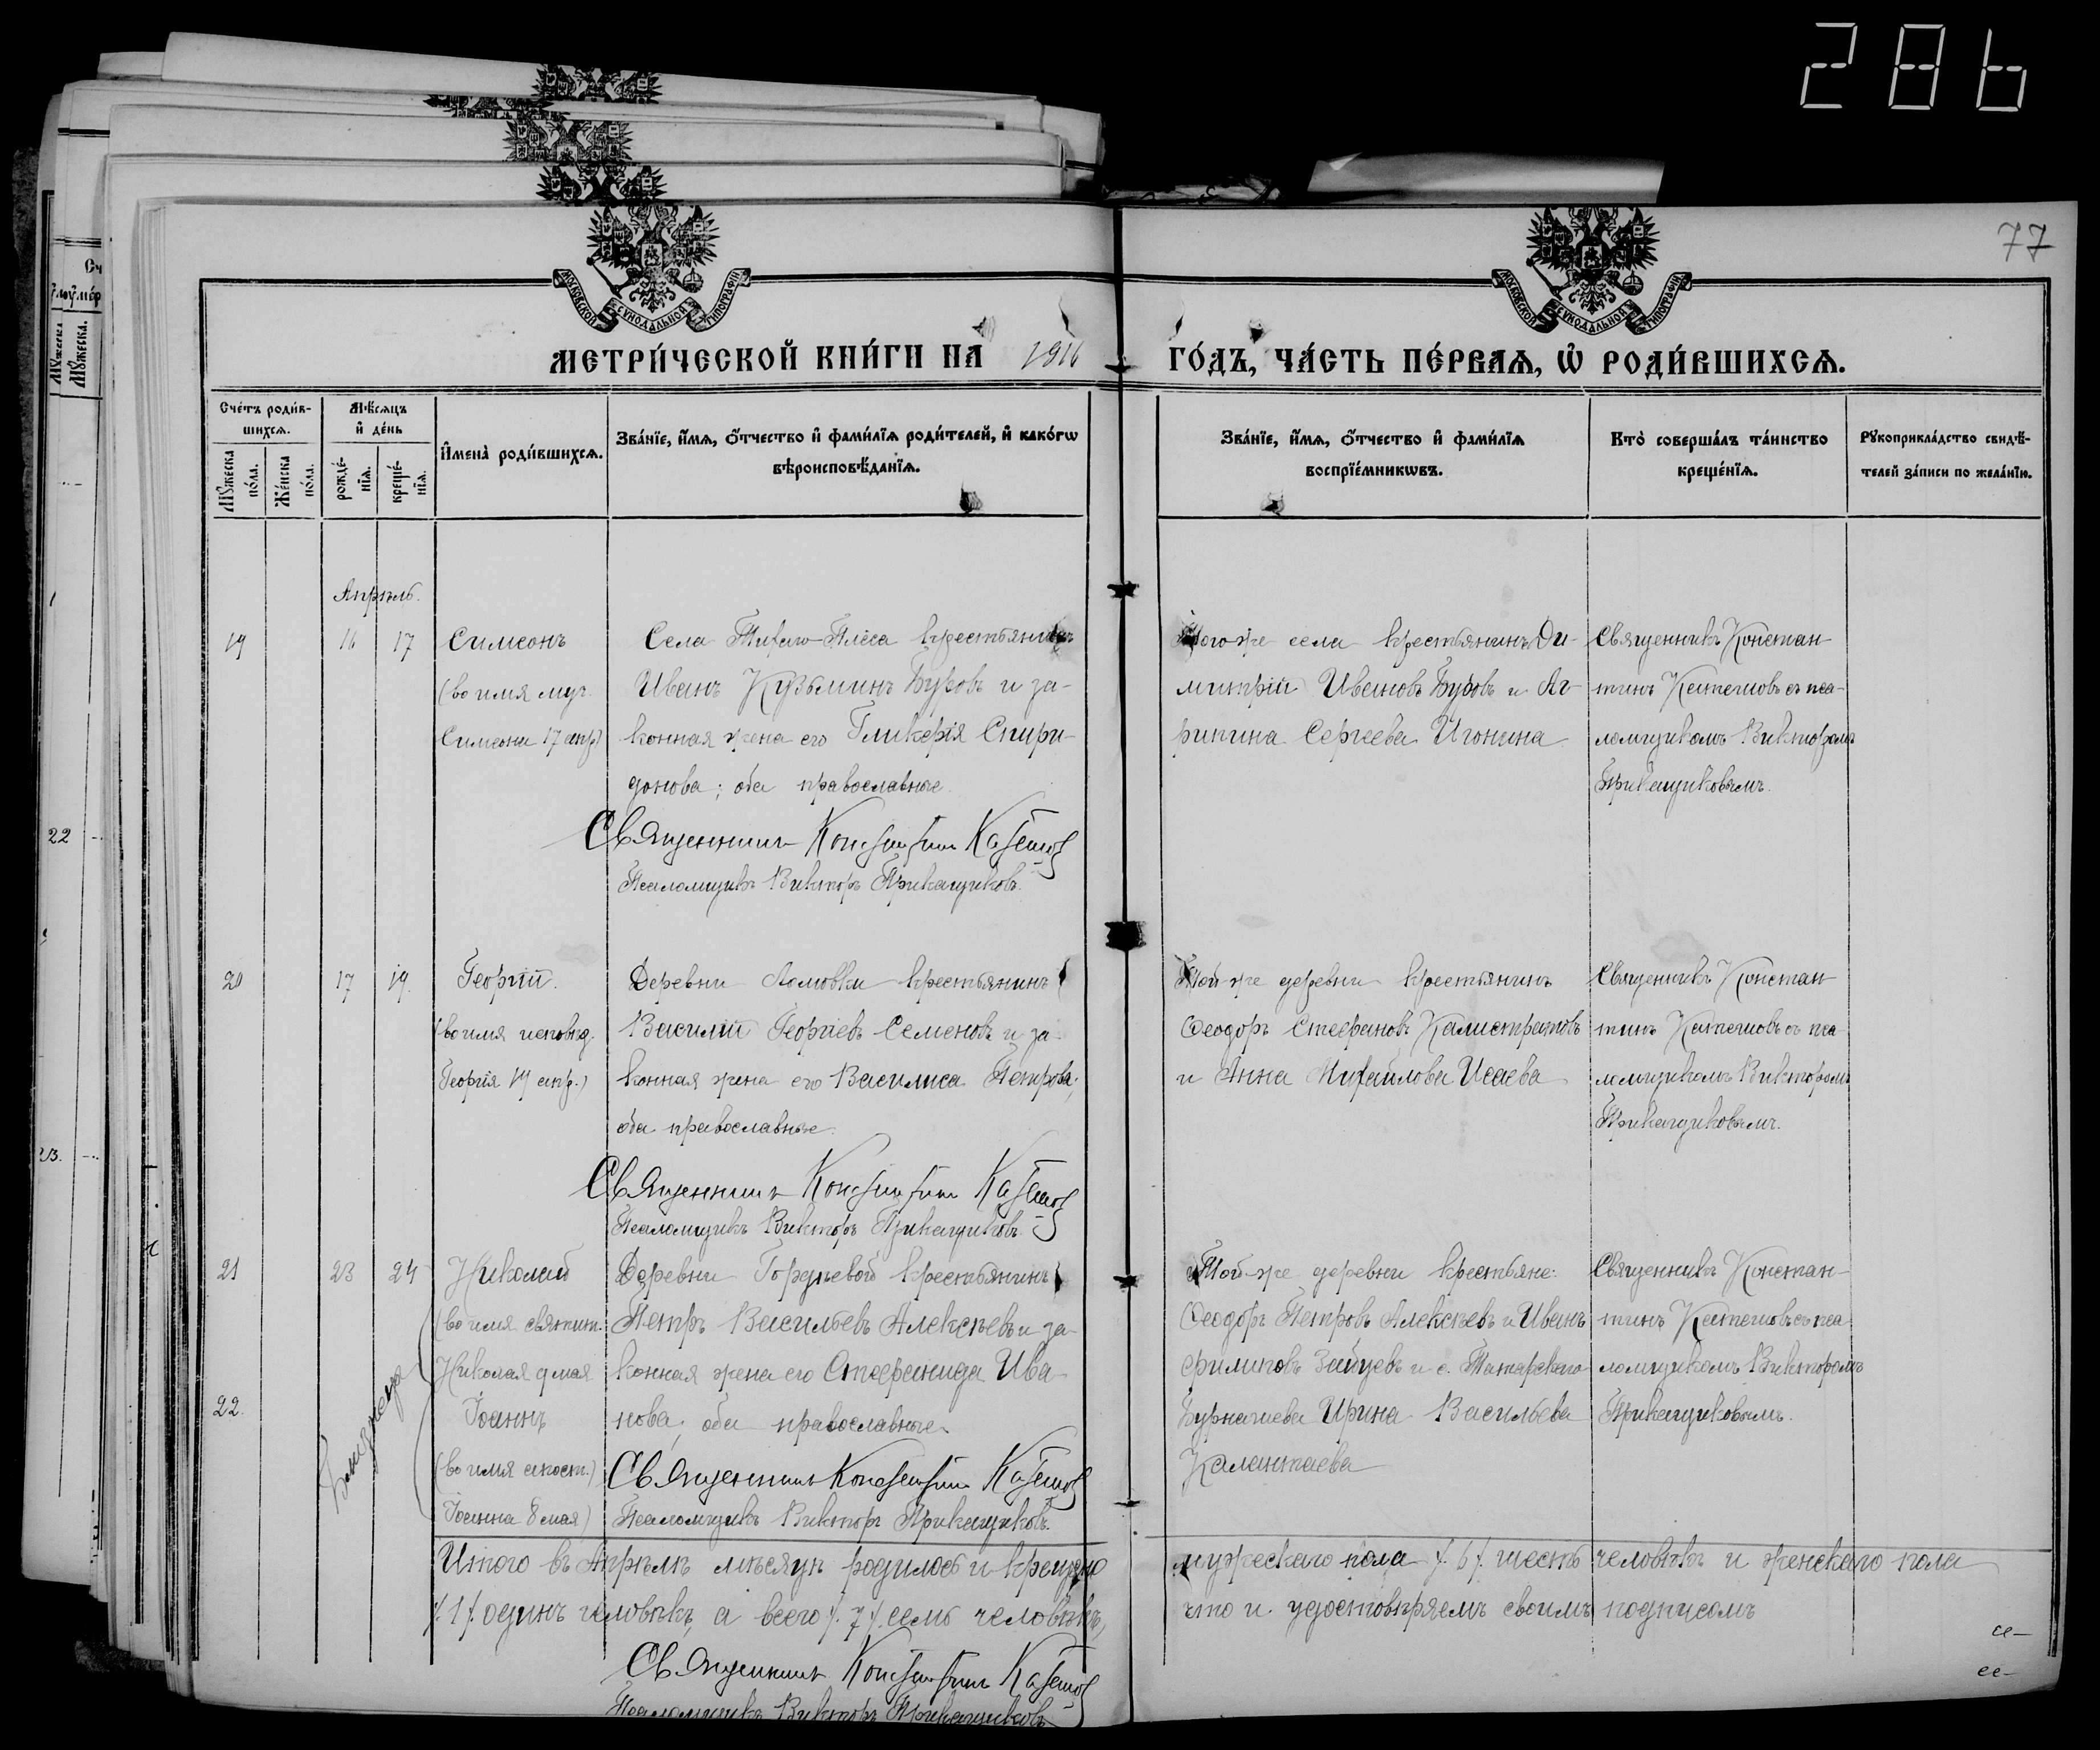 286
77
МОСКОВСКОЙ СѴНОДАЛЬНОЙ ТИПОГРАФІИ
МОСКОВСКОЙ СѴНОДАЛЬНОЙ ТИПОГРАФІИ
МЕТРИ́ЧЕСКОЙ КНИ́ГИ НА 1916 ГО́ДЪ, ЧА́СТЬ ПЕ́РВАѦ, Ѡ҆ РОДИ́ВШИХСѦ.
Сче́тъ роди́в-
шихсѧ.
Мꙋ́жеска по́ла.
Же́нска по́ла.
Мѣ́сѧцъ
и҆ де́нь
рожде́-
нїѧ.
креще́-
нїѧ.
И҆мена̀ роди́вшихсѧ.
Зва́нїе, и҆́мѧ, ѻ҆́тчество и҆ фами́лїѧ роди́телей, и҆ како́гѡ
вѣроисповѣ́данїѧ.
Зва́нїе, и҆́мѧ, ѻ҆́тчество и҆ фами́лїѧ
воспрїе́мникѡвъ.
Кто̀ соверша́лъ та́инство
креще́нїѧ.
Рꙋкоприкла́дство свидѣ́-
телей за́писи по жела́нїю.
Апрѣль.
19
16
17
Симеонъ
(во имя муч.
Симеона 17 апр)
Села Тихаго-Плеса крестьянинъ
Иванъ Кузьминъ Буровъ и за-
конная жена его Гликерія Спири-
донова; оба православные.
Священникъ Константинъ Катешов
Псаломщикъ Викторъ Прикащиковъ.
Того-же села крестьянинъ Ди-
митрій Ивановъ Буровъ и Аг-
рипина Сергеева Игонина
Священникъ Констан-
тинъ Катешовъ съ пса-
ломщикомъ Викторомъ
Прикащиковымъ.
20
17
19.
Георгій.
(во имя исповѣд.
Георгія 19 апр.)
Деревни крестьянинъ
Василій Георгіевъ Семеновъ и за-
конная жена его Василиса Петрова;
оба православные.
Священникъ Константинъ Катешов
Псаломщикъ Викторъ Прикащиковъ.
Той-же деревни крестьянинъ
Ѳеодоръ Стефановъ Калистратовъ
и Анна Михайлова Исаева
Священникъ Констан-
тинъ Катешовъ съ пса-
ломщикомъ Викторомъ
Прикащиковымъ.
21
23
24
Николай
(во имя святит.
Николая 9 мая
22.
Близнецы
Іоаннъ
(во имя апост.)
Іоанна 8 мая)
Деревни Гордѣевой крестьянинъ
Петръ Васильевъ Алексѣевъ и за-
конная жена его Стефанида Ива-
нова; оба православные.
Священникъ Константинъ Катешов
Псаломщикъ Викторъ Прикащиковъ.
Той-же деревни крестьяне:
Ѳеодоръ Петровъ Алексѣевъ и Иванъ
Филиповъ Зайцевъ и с. Татарскаго
Бурнашева Ирина Васильева
Калантаева
Священникъ Констан-
тинъ Катешовъ съ пса-
ломщикомъ Викторомъ
Прикащиковымъ.
Итого въ Апрѣлѣ мѣсяцѣ родилось и крещено мужескаго пола /.6/. шесть человѣкъ и женскаго пола
/.1/. одинъ человѣкъ, а всего /.7/. семь человѣкъ, что и удостовѣряемъ своимъ подписомъ
Священникъ Константинъ Катешов
Псаломщикъ Викторъ Прикащиковъ